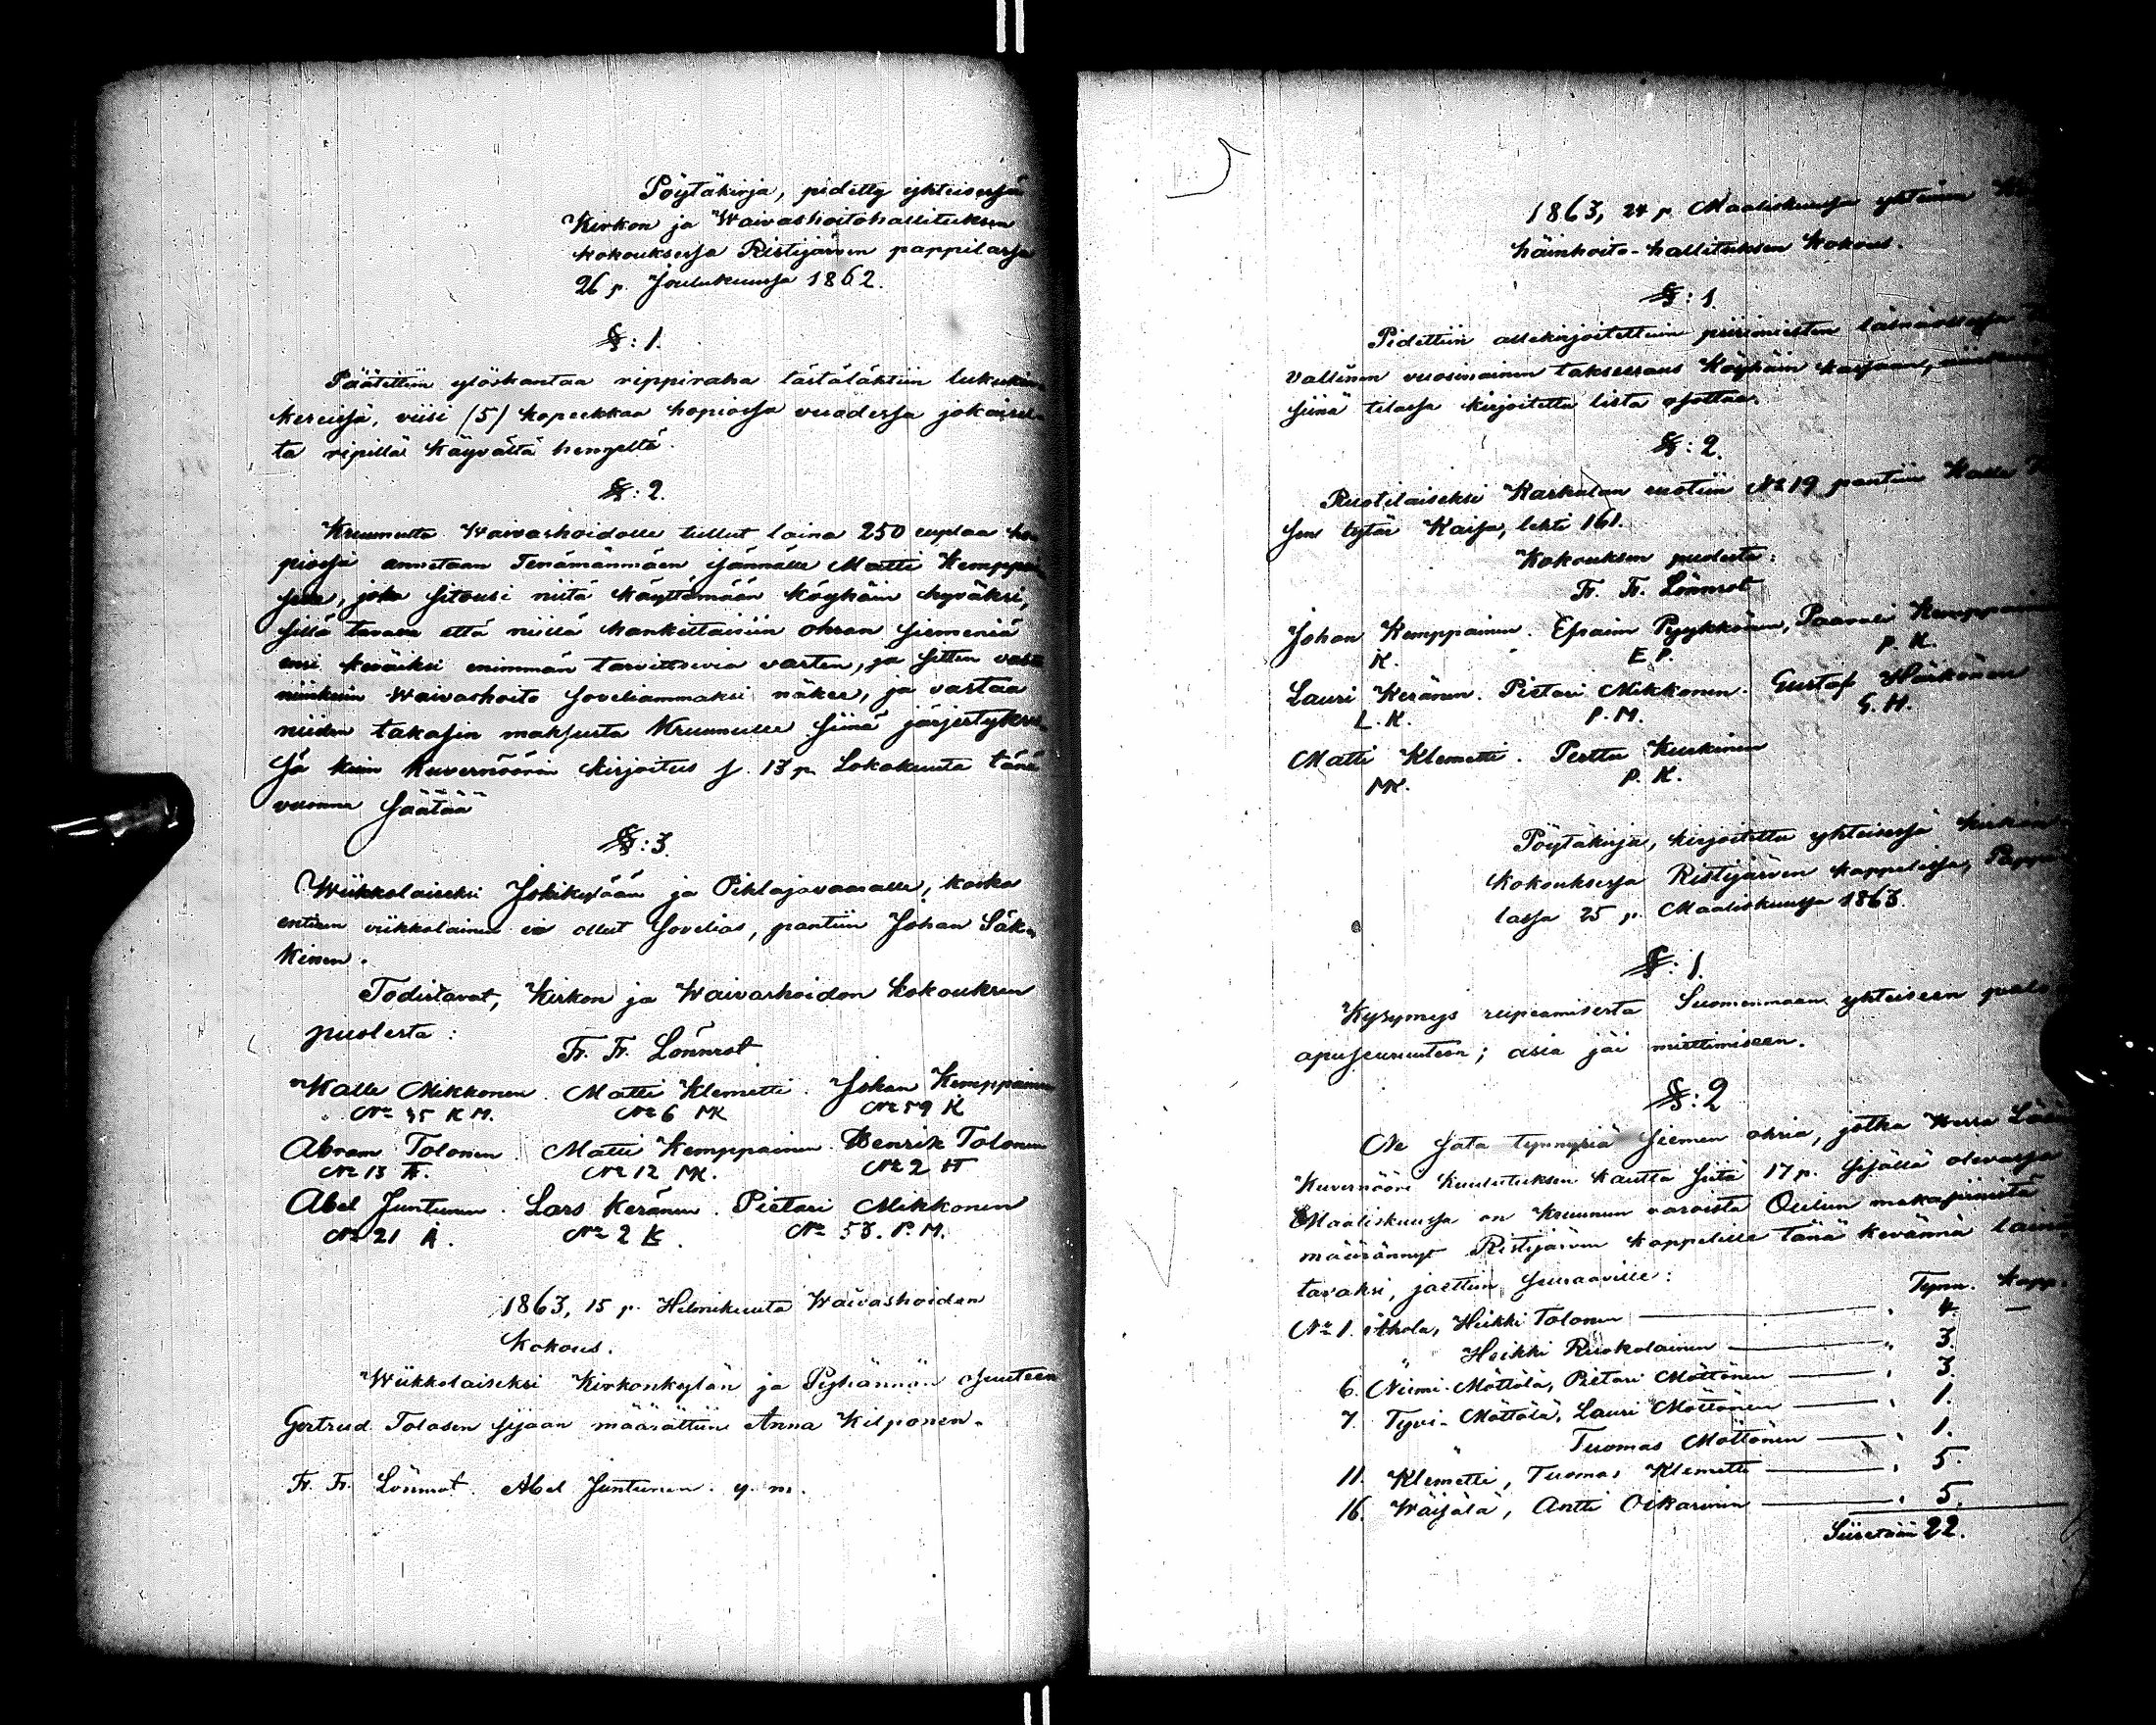 Pöytäkirja, pidetty yhteisessä
Kirkon ja Waivashoitohallituksen
kokouksessa Ristijärven pappilassa
26 p. Joulukuussa 1862.
§: 1.
Päätettiin ylöskantaa rippiraha tästälähtiin lukukin
kereissä, viisi (5) kopeekkaa hopiossa vuodessa jokaisel-
ta ripillä käyvältä hengeltä.
§: 2.
Kruunulta Waivashoidolle tullut laina 250 ruplaa ho
piossa annetaan Tenämänmäen isännälle Matti Kemppai
selle, joka sitousi niitä käyttämään köyhäin hyväksi,
sillä tavalla että niillä hankittaisiin ohran siemeniä
ensi kevääksi enimmän tarvitsevia varten, ja sitten vasta
niinkuin Waivashoito soveliammaksi näkee, ja vastaa
niiden takasin maksusta Kruunulle siinä järjestykses-
sä kuin kuvernöörin kirjoitus s. 13 p. Lokakuuta tänä
vuonna säätää
§: 3.
Wiikkolaiseksi Jokikylään ja Pihlajavaaralle, koska
entinen viikkolainen ei ollut sovelias, pantiin Johan Säk-
kinen.
Todistavat, Kirkon ja Waivashoidon kokouksen
puolesta:
Fr. Fr. Lönnrot
Kalle Mikkonen. Matti Klemetti. Johan Kemppainen
No 35 K M. No 6 MK No 59 K
Abram Tolonen. Matti Kemppainen. Henrik Tolonen
No 13 A. No 12 MK. No 2 H
Abel Juntunen. Lars Keränen. Pietari Mikkonen
No 21 A. No 2 K. No 53. P. M.
1863, 15 p. Helmikuuta Waivashoidon
kokous.
Wiikkolaiseksi Kirkonkylän ja Pyhännän osuuteen
Gertrud Tolosen sijaan määrättiin Anna Kilponen.
Fr. Fr. Lönnrot. Abel Juntunen. y. m.
1863, 24 p. Maaliskuussa yhteinen
häinhoito-hallituksen kokous.
§: 1.
Pidettiin allekirjoitettuin piirimiesten läsnäollessa
vallinen vuosinainen takseeraus Köyhäin kassaan,
siinä tilassa kirjoitettu lista osottaa.
§: 2.
Ruotilaiseksi Karhulan ruotiin No 19 pantiin Kalle
sen tytär Kaisa, lehti 161.
Kokouksen puolesta:
Fr. Fr. Lönnrot
Johan Kemppainen. Efraim Pyykkönen, Paavali Kemppainen
K. E. P. P. K.
Lauri Keränen. Pietari Mikkonen. Gustaf Härkönen
L. K. P. M. G. H.
Matti Klemetti. Perttu Kurkinen
MK. P. K.
Pöytäkirja, kirjoitettu yhteisessä kirkon
kokouksessa Ristijärven kappelissa, Pappi
lassa 25 p. Maaliskuussa 1863.
§: 1.
Kysymys rupeamisesta Suomenmaan yhteiseen palo
apuseuruuteen; asia jäi miettimiseen.
§: 2
Ne sata tynnyriä siemen ohria, jotka Herra Lään
Kuvernööri kuulutuksen kautta siitä 17 p. sisällä olevassa
Maaliskuussa on kruunun varoista Oulun makasiinista
määrännyt Ristijärven kappelille tänä kevännä lainat
tavaksi, jaettiin seuraaville:
Tynn. kapp.
No 1. Ahola, Heikki Tolonen 4. —
" Heikki Ruokolainen " 3.
6. Niemi-Möttölä, Pietari Möttönen " 3.
7. Tyvi-Möttölä, Lauri Möttönen " 1.
" Tuomas Möttönen " 1.
11. Klemetti, Tuomas Klemetti " 5.
16. Wäisälä, Antti Oikarinen " 5.
Siiretään 22.